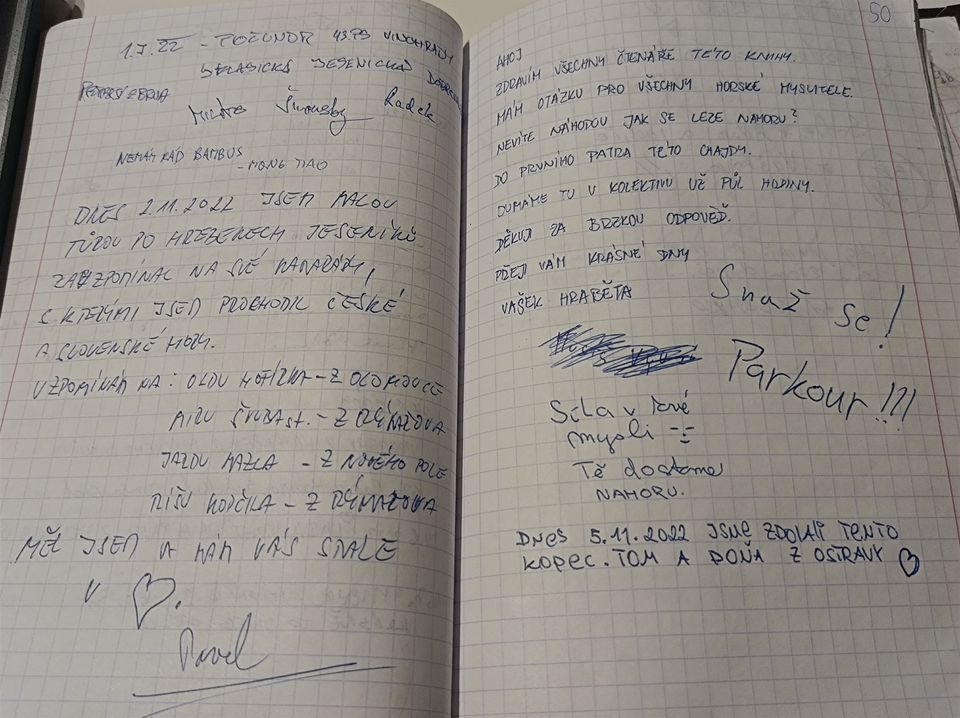 1.J. 22 - VINOHRADY
JESENICKÁ
Radek
NEMÁM RÁD BAMBUS
- MONG MAO
DNES 2.11.2022 JSEM MALOU
TÚROU PO HŘEBENECH JESENÍKŮ
ZAVZPOMÍNAL NA SVÉ KAMARÁDY,
S KTERÝMI JSEM PROCHODIL ČESKÉ
A SLOVENSKÉ HORY.
VZPOMÍNÁM NA: OLDU - Z OLOMOUCE
MÍRU - Z RÝMAŘOVA
JARDU - Z NOVÉHO POLE
RÍŠU KOPČILA - Z RÝMAŘOVA
MĚL JSEM A MÁM VÁS STÁLE
V ♡.
Pavel
50
AHOJ
ZDRAVÍM VŠECHNY ČTENÁŘE TÉTO KNIHY.
MÁM OTÁZKU PRO VŠECHNY HORSKÉ MYSLITELE.
NEVÍTE NÁHODOU JAK SE LEZE NAHORU?
DO PRVNÍHO PATRA TÉTO CHAJDY.
DUMÁME TU V KOLEKTIVU UŽ PŮL HODINY.
DĚKUJI ZA BRZKOU ODPOVĚĎ.
PŘEJI VÁM KRÁSNÉ DNY
VAŠEK HRABĚTA
Snaž se!
Parkour!!!
Síla v tvé
mysli
Tě dostane
NAHORU.
DNES 5.11.2022 JSME ZDOLALI TENTO
KOPEC. TOM A DOŇA Z OSTRAVY ♡